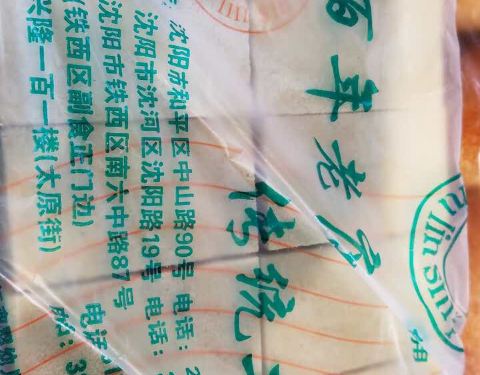 百年老店
传统
沈阳市和平区中山路90号 电话:2
沈阳市沈河区沈阳路19号 电话:
沈阳市铁西区南六中路87号 电话
(铁西区副食正门边)
兴隆一百一楼(太原街)